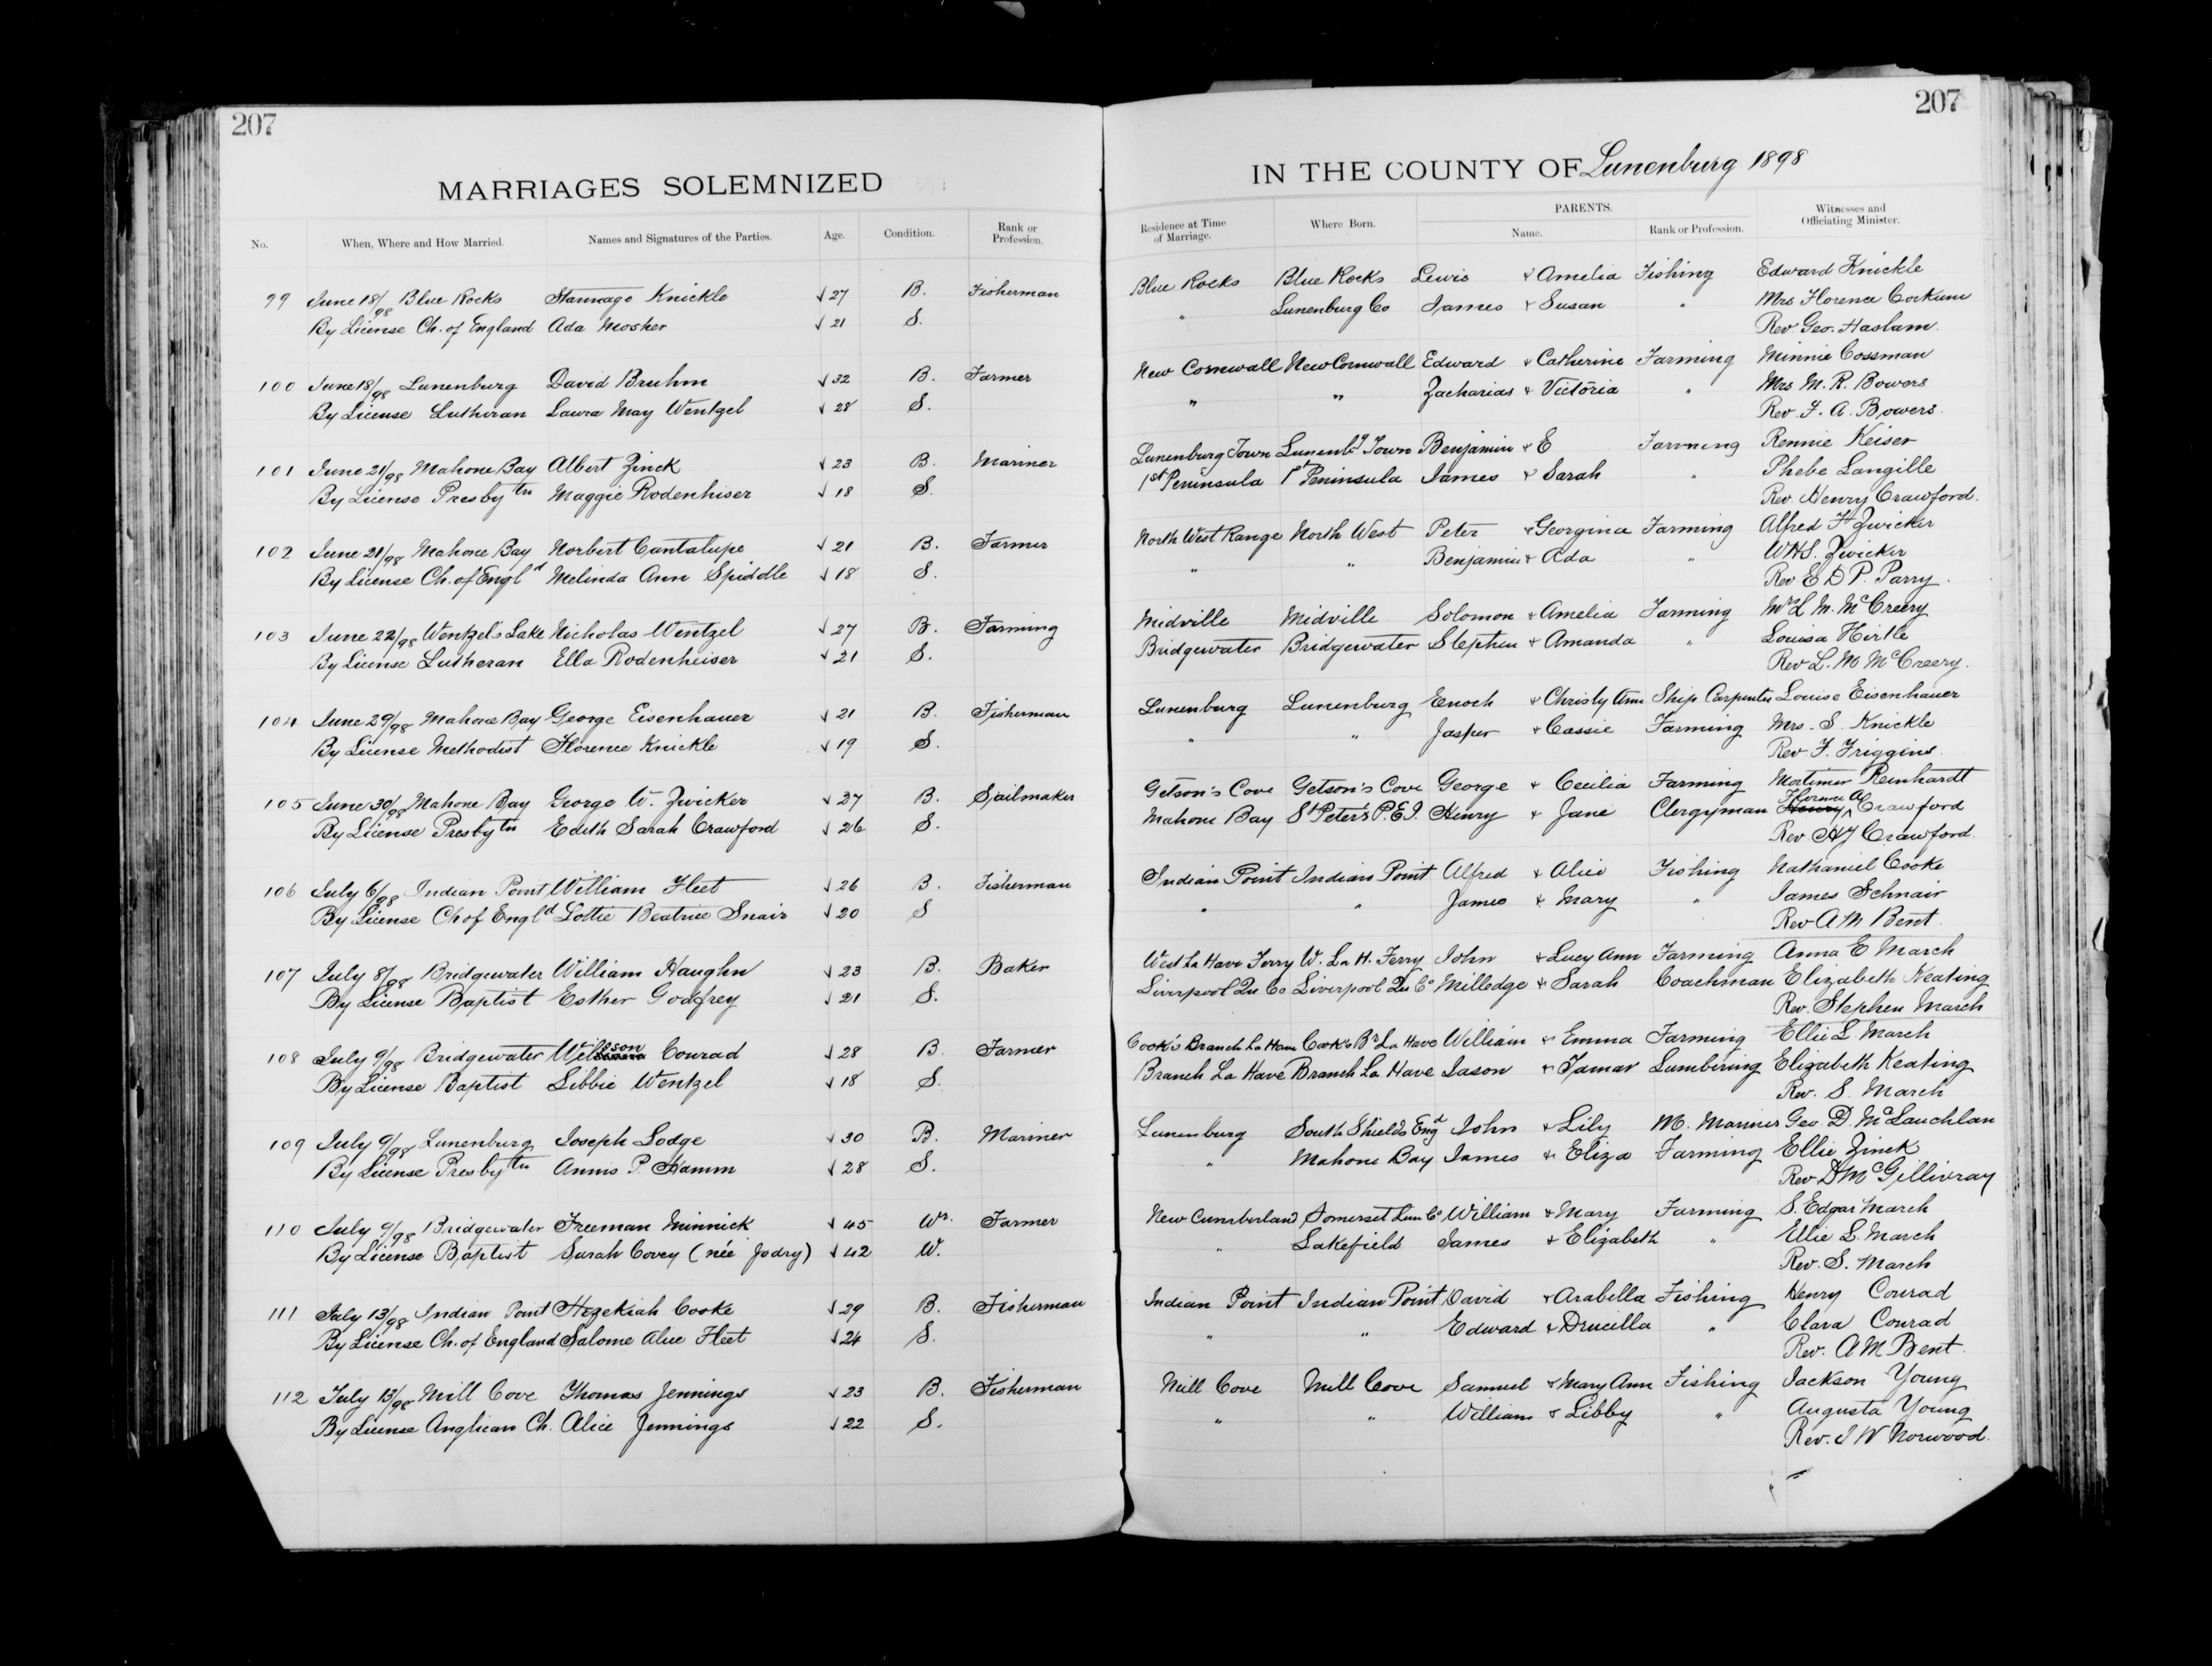 207
207
MARRIAGES SOLEMNIZED
IN THE COUNTY OF Lunenburg 1898
No. When, Where and How Married. Names and Signatures of the Parties. Age. Condition. Rank or Profession. Residence at Time of Marriage. Where Born. PARENTS. Name. Rank or Profession. Witnesses and Officiating Minister.
99 June 18/98 Blue Rocks Stannage Knickle √ 27 B. Fisherman Blue Rocks Blue Rocks Lewis & Amelia Fishing Edward Knickle
By License Ch. of England Ada Mosher √ 21 S. " Lunenburg Co James & Susan " Mrs Florence Corkum
Rev. Geo. Haslam.
100 June 18/98 Lunenburg David Bruhm √ 32 B. Farmer New Cornwall New Cornwall Edward & Catherine Farming Minnie Cossman
By License Lutheran Laura May Wentzel √ 28 S. " " Zacharias & Victoria " Mrs M. R. Bowers
Rev. F. A. Bowers.
101 June 21/98 Mahone Bay Albert Zinck √ 23 B. Mariner Lunenburg Town Lunenbg Town Benjamin & E Farming Rennie Keiser
By License Presbytn Maggie Rodenhiser √ 18 S. 1st Peninsula 1st Peninsula James & Sarah " Phebe Langille
Rev. Henry Crawford.
102 June 21/98 Mahone Bay Norbert Cantalupe √ 21 B. Farmer North West Range North West Peter & Georgina Farming Alfred H Zwicker
By License Ch. of Engld Melinda Ann Spiddle √ 18 S. " " Benjamin & Ada " WHS. Zwicker
Rev E D P. Parry.
103 June 22/98 Wentzel's Lake Nicholas Wentzel √ 27 B. Farming Midville Midville Solomon & Amelia Farming Mrs L M. McCreery
By License Lutheran Ella Rodenheiser √ 21 S. Bridgewater Bridgewater Stephen & Amanda " Louisa Hirtle
Rev L. M McCreery.
104 June 29/98 Mahone Bay George Eisenhauer √ 21 B. Fisherman Lunenburg Lunenburg Enoch & Christy Ann Ship Carpenter Louise Eisenhauer
By License Methodist Florence Knickle √ 19 S. " " Jasper & Cassie Farming Mrs. S. Knickle
Rev F. Friggins.
105 June 30/98 Mahone Bay George W. Zwicker √ 37 B. Sailmaker Getson's Cove Getson's Cove George & Cecilia Farming Mortimer Reinhardt
By License Presbytn Edith Sarah Crawford √ 26 S. Mahone Bay St Peter's P.E.I. Henry & Jane Clergyman Florence A Crawford
Rev HJ Crawford
106 July 6/98 Indian Point William Fleet √ 26 B. Fisherman Indian Point Indian Point Alfred & Alice Fishing Nathaniel Cooke
By License Ch of Engld Lottie Beatrice Snair √ 20 S " " James & Mary " James Schnair
Rev A M Bent.
107 July 8/98 Bridgewater William Haughn √ 23 B. Baker West La Have Ferry W. La H. Ferry John & Lucy Ann Farming Anna E March
By License Baptist Esther Godfrey √ 21 S. Liverpool Qu Co Liverpool Qu Co Milledge & Sarah Coachman Elizabeth Keating
Rev. Stephen March
108 July 9/98 Bridgewater Willson Conrad √ 28 B. Farmer Cook's Branch La Have Cook's Br La Have William & Emma Farming Ellie L March
By License Baptist Libbie Wentzel √ 18 S. Branch La Have Branch La Have Jason & Tamar Lumbering Elizabeth Keating
Rev. S. March
109 July 9/98 Lunenburg Joseph Lodge √ 30 B. Mariner Lunenburg South Shields Engd John & Lily M. Mariner Geo. D. McLauchlan
By License Presbytn Annis P. Hamm √ 28 S. " Mahone Bay James & Eliza Farming Ellie Zinck
Rev D McGillivray
110 July 9/98 Bridgewater Freeman Minnick √ 45 Wr. Farmer New Cumberland Somerset Lun Co William & Mary Farming S. Edgar March
By License Baptist Sarah Covey (née Jodry) √ 42 W. " Lakefield James & Elizabeth " Ellie L. March
Rev. S. March
111 July 13/98 Indian Point Hezekiah Cooke √ 29 B. Fisherman Indian Point Indian Point David & Arabella Fishing Henry Conrad
By License Ch. of England Salome Alice Fleet √ 24 S. " " Edward & Drucilla " Clara Conrad
Rev. A M Bent.
112 July 13/98 Mill Cove Thomas Jennings √ 23 B. Fisherman Mill Cove Mill Cove Samuel & Mary Ann Fishing Jackson Young
By License Anglican Ch. Alice Jennings √ 22 S. " " William & Libby " Augusta Young
Rev. I W Norwood.